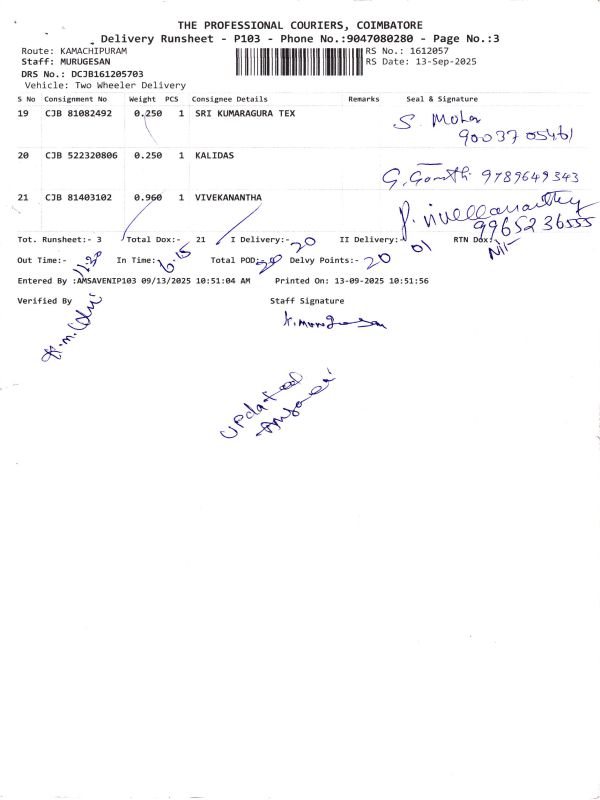 THE PROFESSIONAL COURIERS, COIMBATORE
Delivery Runsheet - P103 - Phone No.:9047080280 - Page No.:3
Route: KAMACHIPURAM RS No.: 1612057
Staff: MURUGESAN RS Date: 13-Sep-2025
DRS No.: DCJB161205703
Vehicle: Two Wheeler Delivery
S No Consignment No Weight PCS Consignee Details Remarks Seal & Signature
19 CJB 81082492 0.250 1 SRI KUMARAGURA TEX S. Mohan
90037 05461
20 CJB 522320806 0.250 1 KALIDAS
G. 9789649343
21 CJB 81403102 0.960 1 VIVEKANANTHA P. 
9965236555
Tot. Runsheet:- 3 Total Dox:- 21 I Delivery:- 20 II Delivery:- 01 RTN Dox: Nil
Out Time:- 11.30 In Time:- 6.15 Total POD:- 20 Delvy Points:- 20
Entered By :AMSAVENIP103 09/13/2025 10:51:04 AM Printed On: 13-09-2025 10:51:56
Verified By Staff Signature
Updated